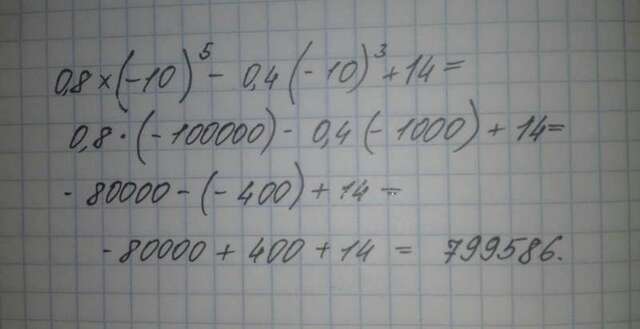 0,8×(-10)⁵ - 0,4(-10)³ + 14 =
0,8·(-100000) - 0,4(-1000) + 14 =
- 80000 - (-400) + 14 =
- 80000 + 400 + 14 = 799586.